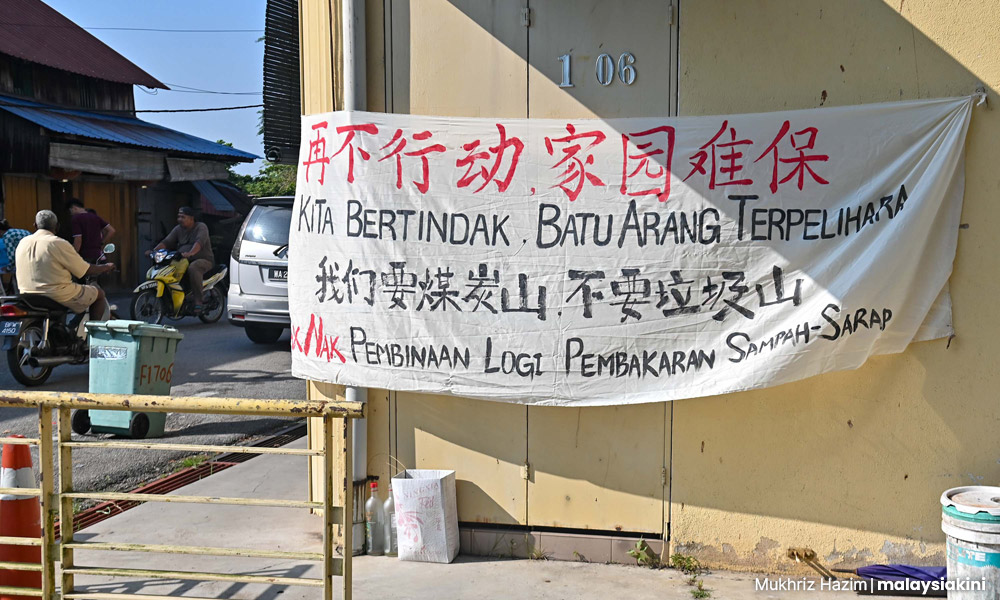 1 06
再不行动,家园难保
KITA BERTINDAK, BATU ARANG TERPELIHARA
我们要煤炭山,不要垃圾山
K NAK PEMBINAAN LOGI PEMBAKARAN SAMPAH-SARAP
F1706
WA 2
Mukhriz Hazim | malaysiakini